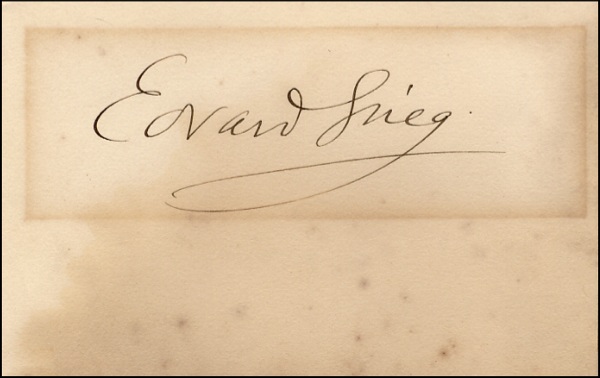 Edvard Grieg.